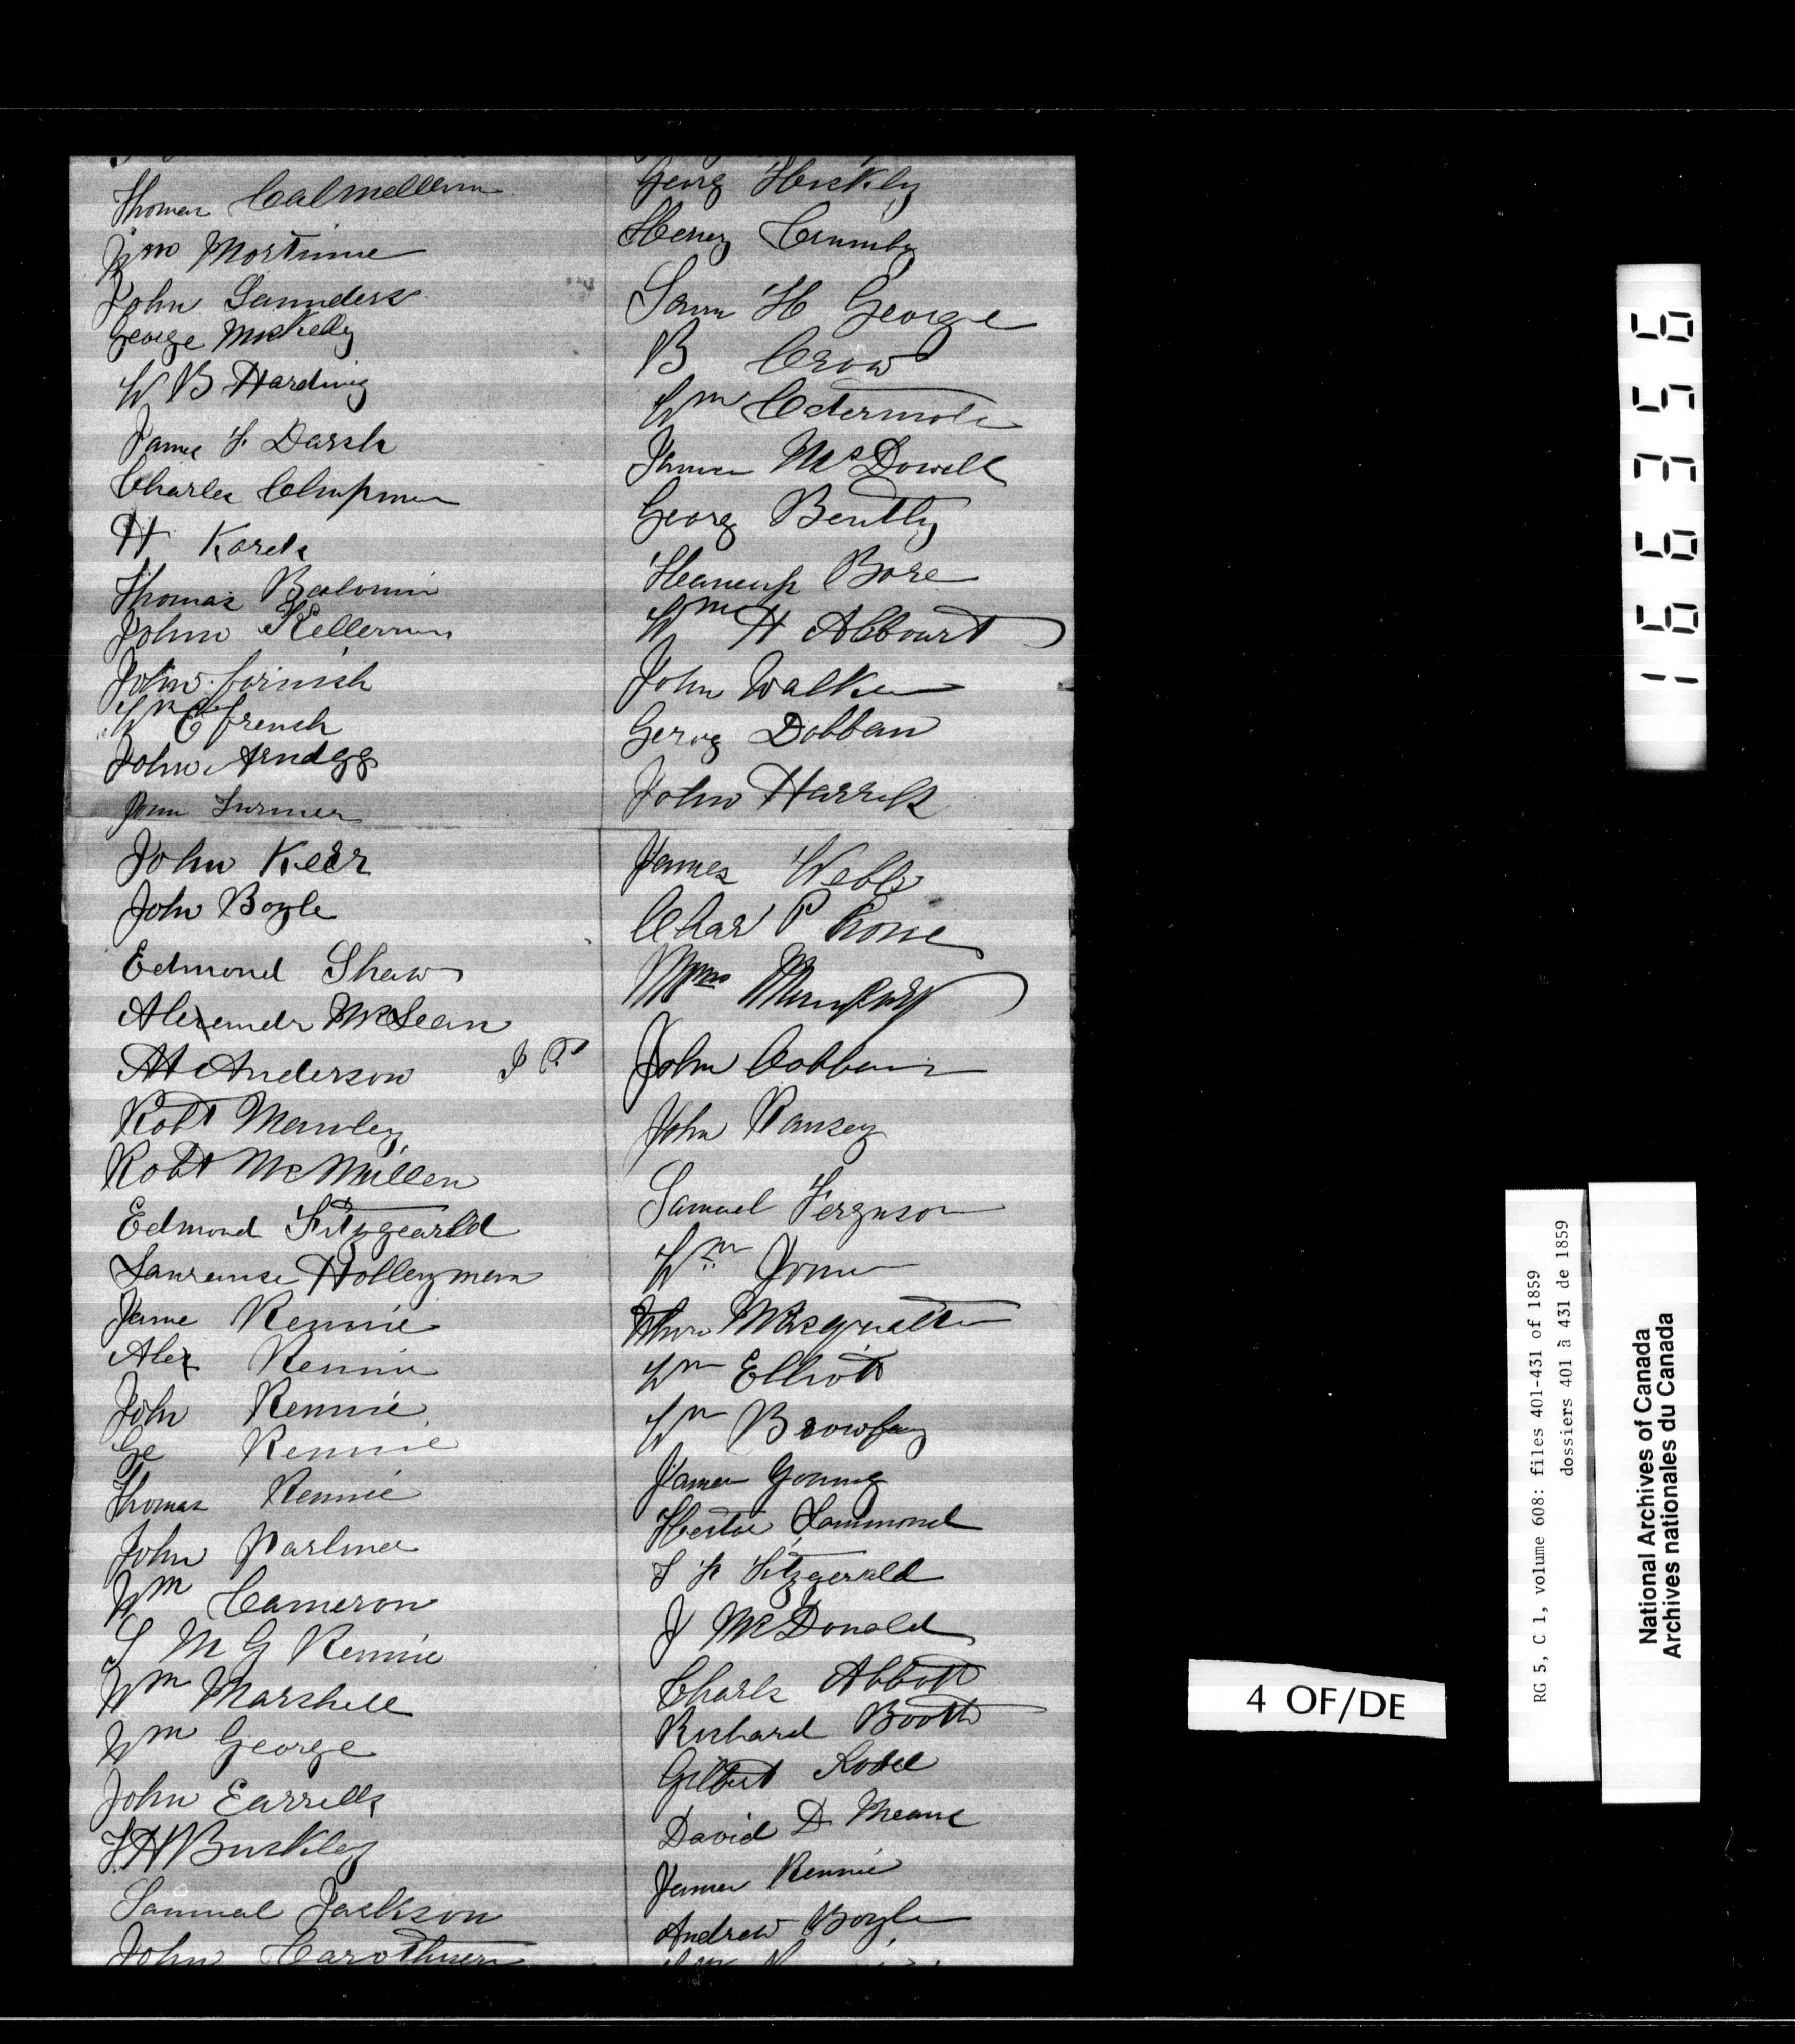 Thomas
Wm Mortime
John Saunders
George McKelly
W B Harding
James F. Darsh
Charles Chapman
H Karch
Thomas
John Kellerman
John Cornish
Wm C French
John Arndgg
John Turner
John Keer
John Boyle
Edmond Shaw
Alexander McLean
A Anderson J P
Robt Manley
Robt McMullen
Edmond Fitzgearld
Laurense Holleyman
Jame Rennie
Alex Rennie
John Rennie
Ge Rennie
Thomas Rennie
John Parlmer
Wm Cameron
S M G Rennie
Wm Marshell
Wm George
John Earrells
J. H Buskley
Samual Jackson
John Carothuers
Georg Hickly
Henry Crumby
Sam H George
B Crow
Wm Catermole
James McDowell
Georg Bently
Bore
Wm H Abbourt
John Walker
Gerog Dobban
John Harrells
James Webb
Chas P
Wm Murphy
John Cobban
John Ransey
Samuel Ferguson
Wm
Wm Elliott
Wm
James Young
Hector Hammond
Fitzgerald
J McDonald
Charls Abbott
Richard Booth
Gilbert
David D Means
James Rennie
Andrew Boyle
166356
RG 5, C 1, volume 608: files 401-431 of 1859
dossiers 401 à 431 de 1859
National Archives of Canada
Archives nationales du Canada
4 OF/DE